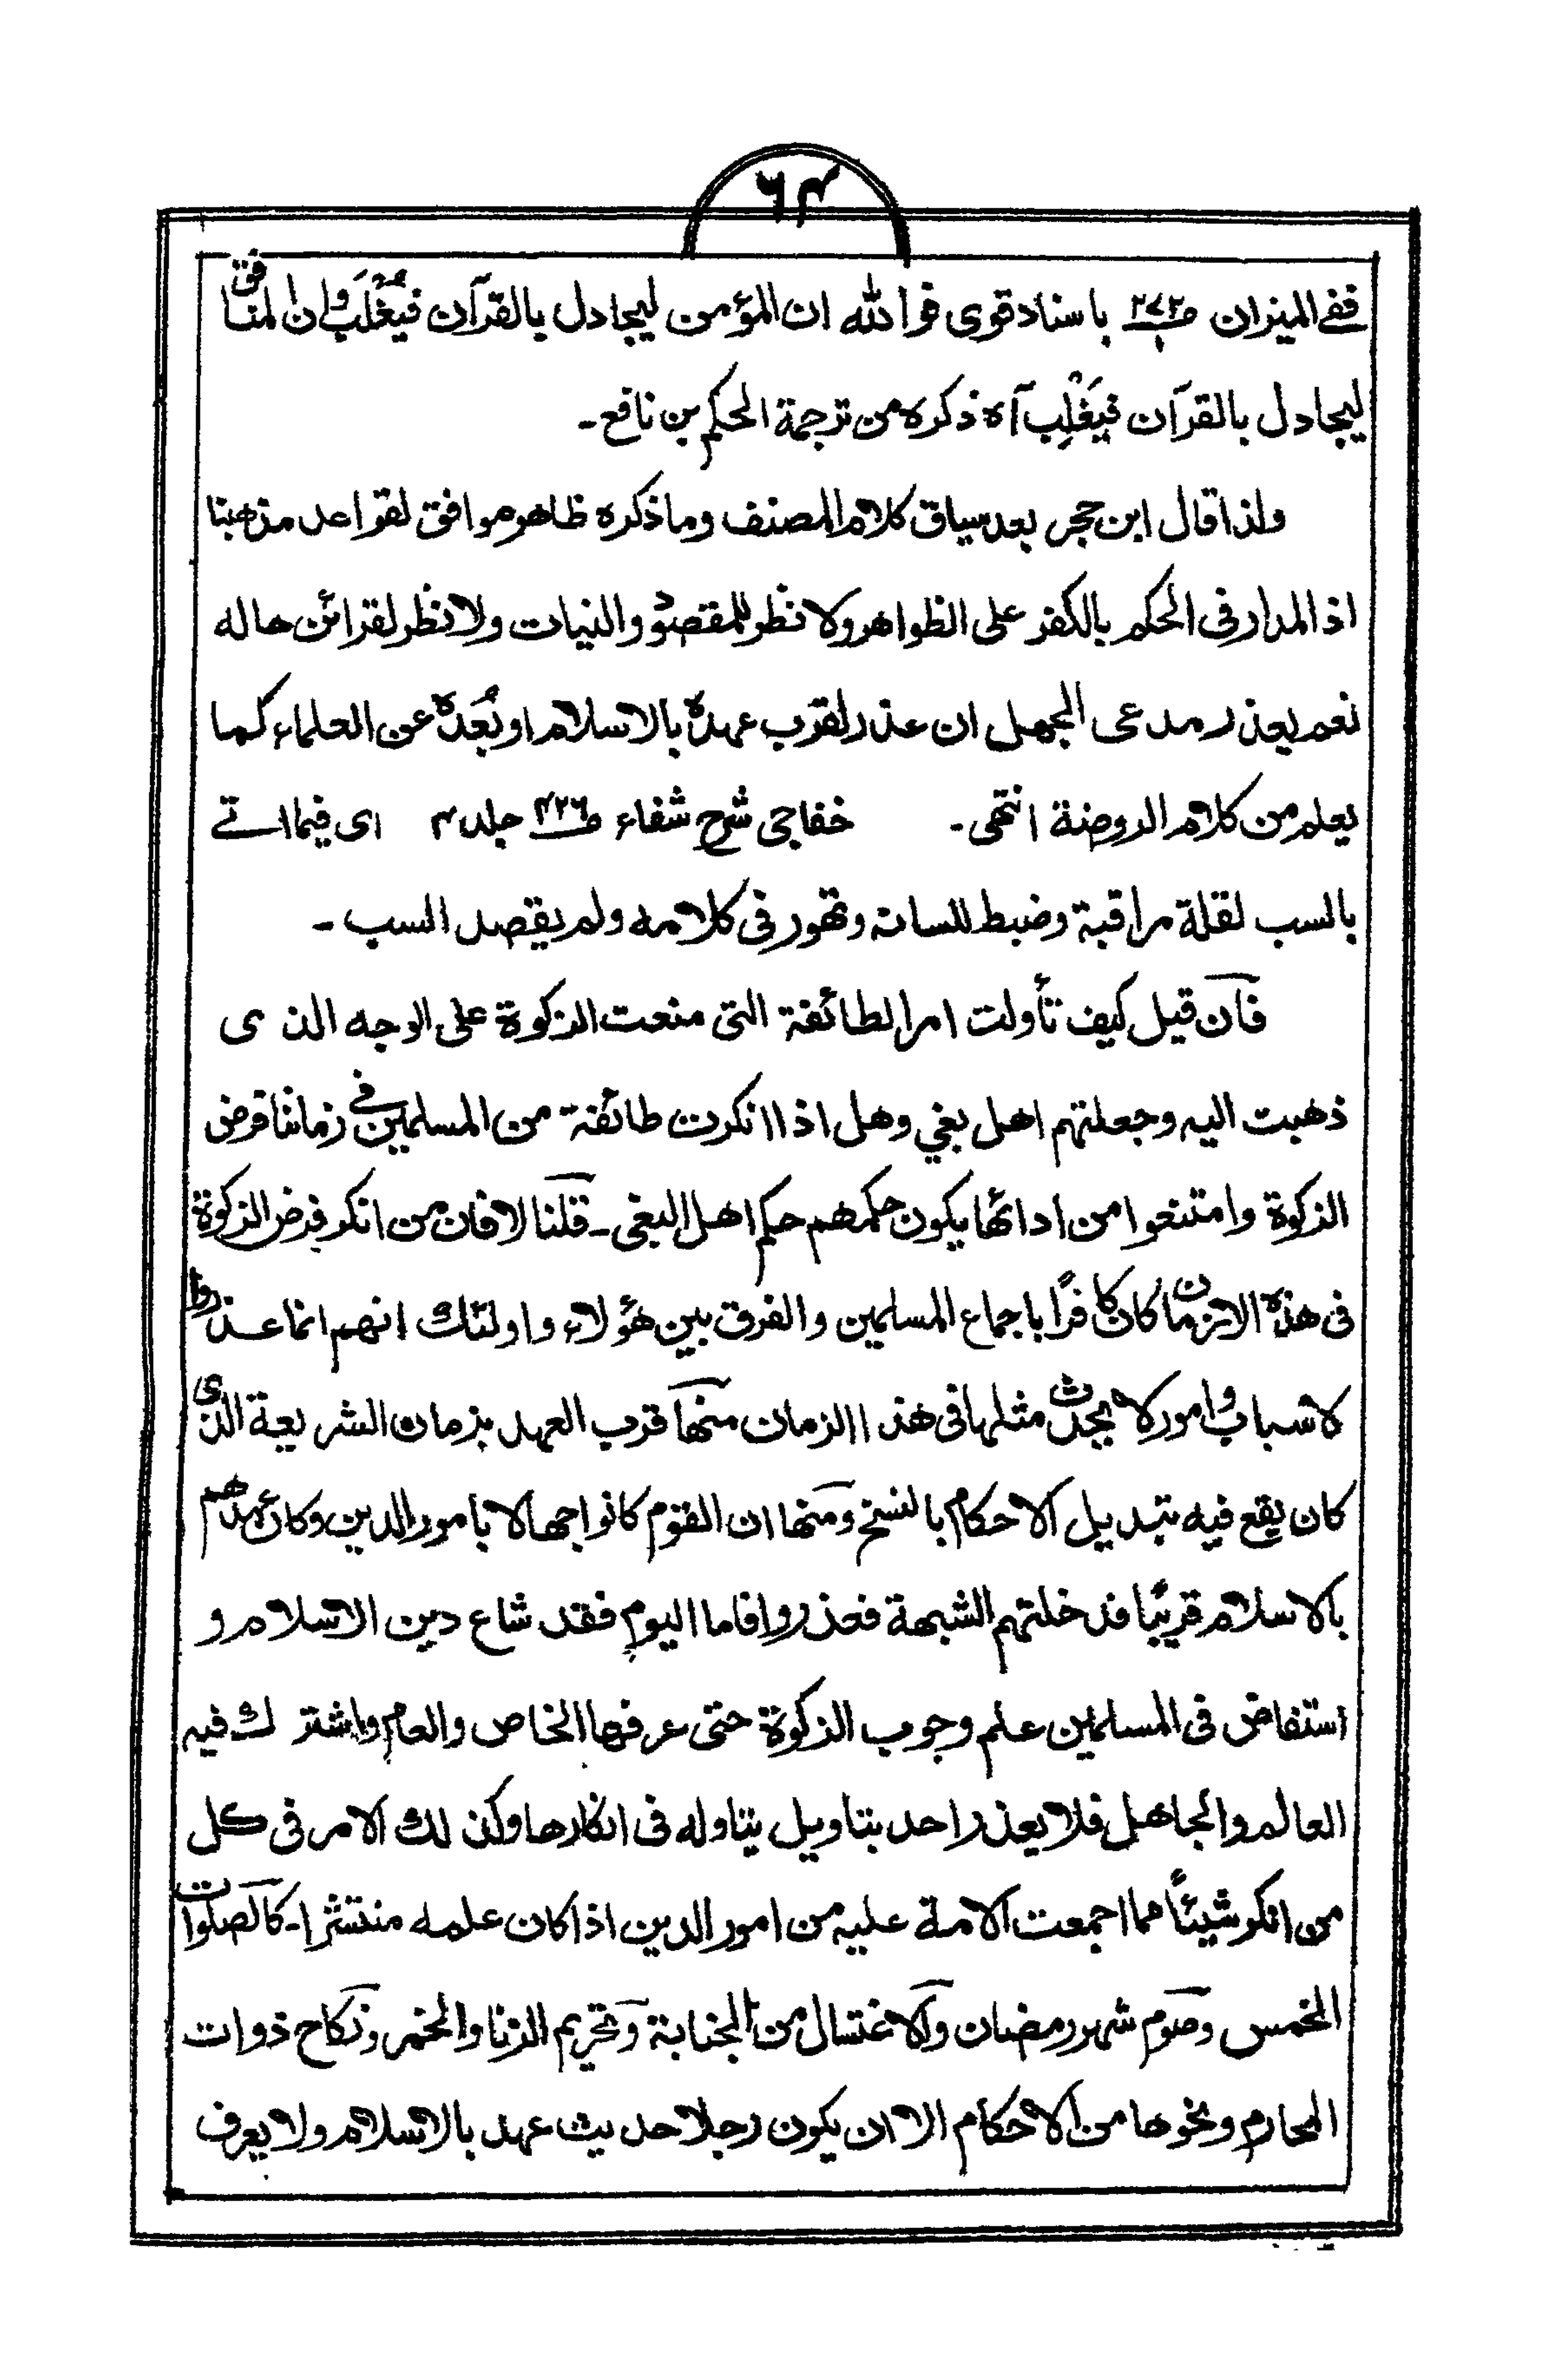 ٦٤
ففی المیزان ص ٢٧٢/١ باسناد قوی فوالله ان المؤمن لیجادل بالقرآن فیُغْلَبُ وان المنافق
لیجادل بالقرآن فیَغْلِب آه ذکره من ترجمة الحکم بن نافع۔
ولذا قال ابن حجر بعد سیاق کلام المصنف وما ذکره ظاهر موافق لقواعد مذهبنا
اذ المدار فی الحکم بالکفر علی الظواهر ولا نظر للمقصود والنیات ولا نظر لقرائن حاله
نعم یعذر مدعی الجهل ان عذر لقرب عهده بالاسلام او بُعده عن العلماء کما
یعلم من کلام الروضة انتهی۔ خفاجی شرح شفاء ص ٤٢٦ جلد ٤ ای فیما اتے
بالسب لقلة مراقبة وضبط للسانه وتهور فی کلامه ولم یقصد السب۔
فان قیل کیف تأولت امر الطائفة التی منعت الزکوة علی الوجه الذی
ذهبت الیه وجعلتهم اهل بغی وهل اذا انکرت طائفة من المسلمین فی زماننا فرض
الزکوة وامتنعوا من ادائها یکون حکمهم حکم اهل البغی۔ قلنا لا فان من انکر فرض الزکوة
فی هذه الازمان کان کافرًا باجماع المسلمین والفرق بین هؤلاء واولئك انهم انما عذروا
لاسباب وامور لا یحدث مثلها فی هذا الزمان منها قرب العهد بزمان الشریعة الذی
کان یقع فیه تبدیل الاحکام بالنسخ ومنها ان القوم کانوا جهالا بامور الدین وکان عهدهم
بالاسلام قریبًا فدخلتهم الشبهة فعذروا فاما الیوم فقد شاع دین الاسلام و
استفاض فی المسلمین علم وجوب الزکوة حتی عرفها الخاص والعام واشترك فیه
العالم والجاهل فلا یعذر احد بتاویل یتاوله فی انکارها وکذلك الامر فی کل
من انکر شیئاً مما اجمعت الامة علیه من امور الدین اذا کان علمه منتشرا۔ کالصلوات
الخمس وصوم شهر رمضان والاغتسال من الجنابة وتحریم الزنا والخمر ونکاح ذوات
المحارم ونحوها من الاحکام الا ان یکون رجلا حدیث عهد بالاسلام ولا یعرف